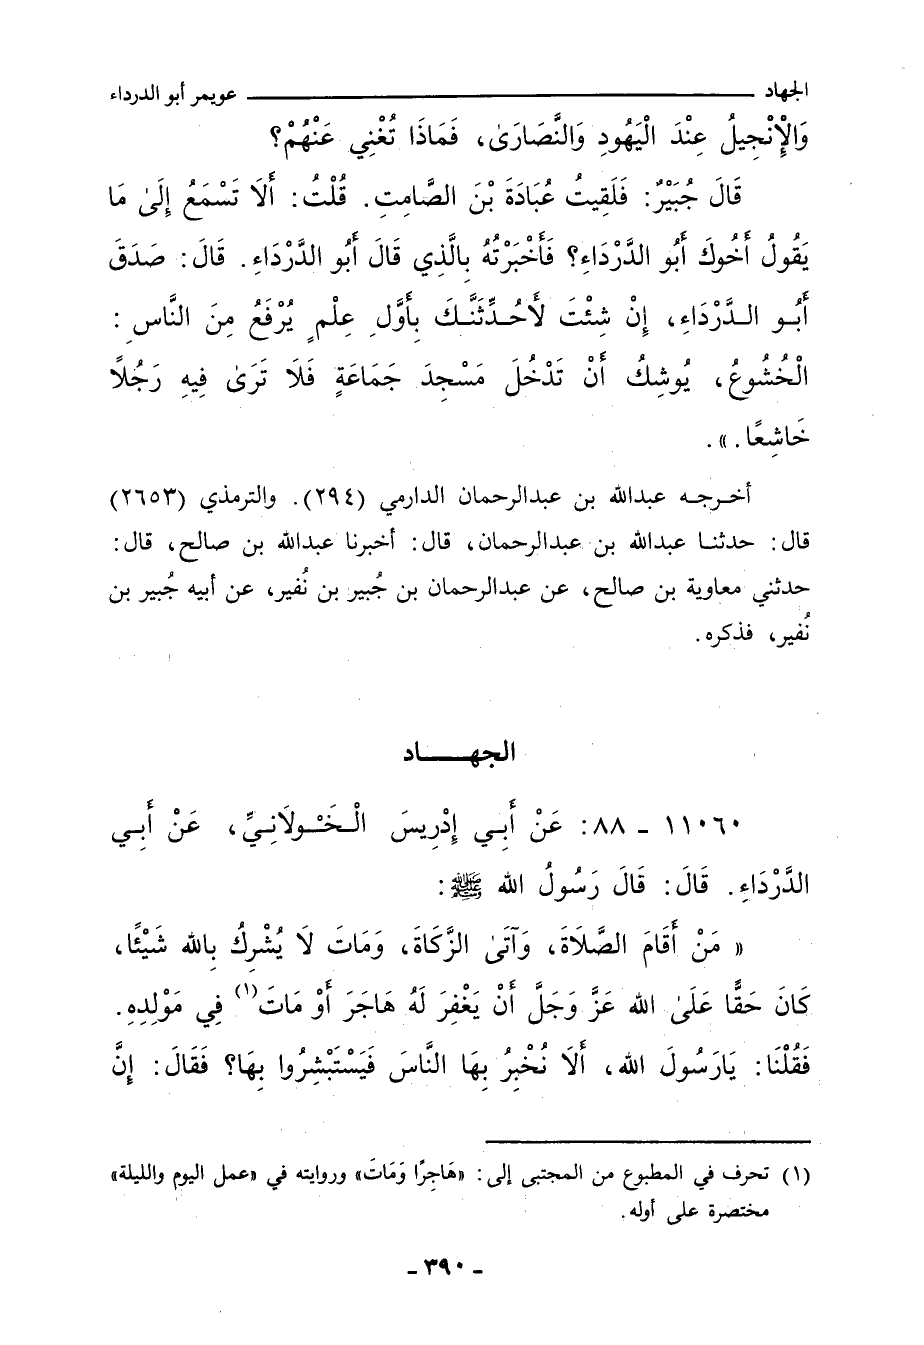 الجهاد ـــــــــــــــــــــــــــــ عويمر أبو الدرداء
وَالْإِنْجِيلُ عِنْدَ الْيَهُودِ وَالنَّصَارَىٰ، فَمَاذَا تُغْنِي عَنْهُمْ؟
قَالَ جُبَيْرٌ: فَلَقِيتُ عُبَادَةَ بْنَ الصَّامِتِ. قُلْتُ: أَلَا تَسْمَعُ إِلَىٰ مَا
يَقُولُ أَخُوكَ أَبُو الدَّرْدَاءِ؟ فَأَخْبَرْتُهُ بِالَّذِي قَالَ أَبُو الدَّرْدَاءِ. قَالَ: صَدَقَ
أَبُو الدَّرْدَاءِ، إِنْ شِئْتَ لَأُحَدِّثَنَّكَ بِأَوَّلِ عِلْمٍ يُرْفَعُ مِنَ النَّاسِ:
الْخُشُوعُ، يُوشِكُ أَنْ تَدْخُلَ مَسْجِدَ جَمَاعَةٍ فَلَا تَرَىٰ فِيهِ رَجُلًا
خَاشِعًا.».
أخرجه عبدالله بن عبدالرحمان الدارمي (٢٩٤). والترمذي (٢٦٥٣)
قال: حدثنا عبدالله بن عبدالرحمان، قال: أخبرنا عبدالله بن صالح، قال:
حدثني معاوية بن صالح، عن عبدالرحمان بن جُبير بن نُفير، عن أبيه جُبير بن
نُفير، فذكره.
الجهـــــاد
١١٠٦٠ - ٨٨: عَنْ أَبِي إِدْرِيسَ الْخَوْلَانِيِّ، عَنْ أَبِي
الدَّرْدَاءِ. قَالَ: قَالَ رَسُولُ الله ﷺ:
« مَنْ أَقَامَ الصَّلَاةَ، وَآتَىٰ الزَّكَاةَ، وَمَاتَ لَا يُشْرِكُ بِالله شَيْئًا،
كَانَ حَقًّا عَلَىٰ الله عَزَّ وَجَلَّ أَنْ يَغْفِرَ لَهُ هَاجَرَ أَوْ مَاتَ(١) فِي مَوْلِدِهِ.
فَقُلْنَا: يَارَسُولَ الله، أَلَا نُخْبِرُ بِهَا النَّاسَ فَيَسْتَبْشِرُوا بِهَا؟ فَقَالَ: إِنَّ
(١) تحرف في المطبوع من المجتبى إلى: «هَاجِرًا وَمَاتَ» وروايته في «عمل اليوم والليلة»
مختصرة على أوله.
- ٣٩٠ -